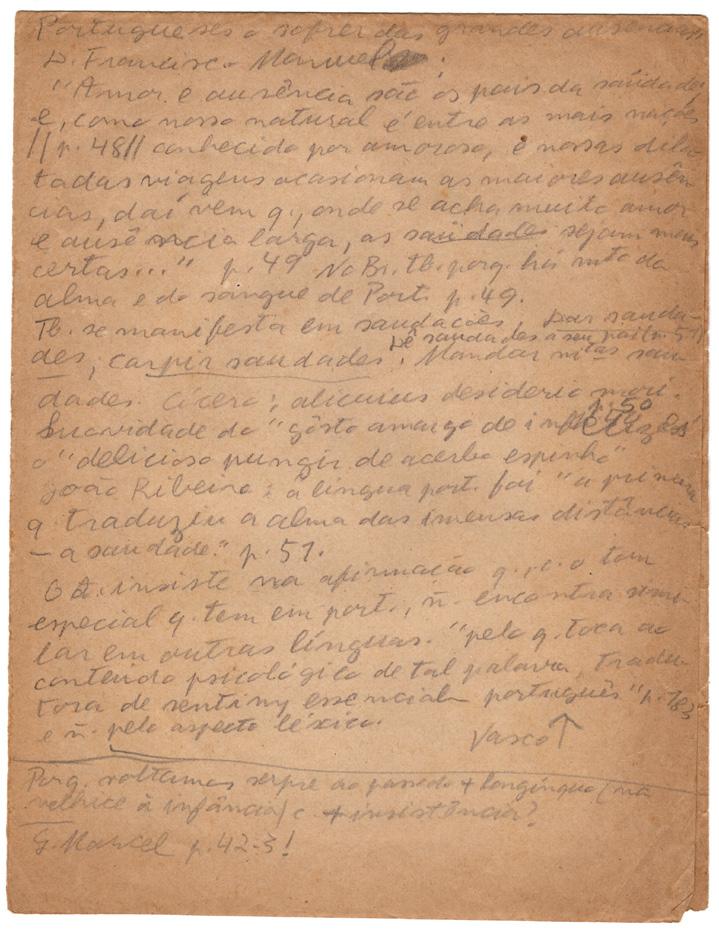 Portugueses o sofrer das grandes ausências
D. Francisco Manuel:
"Amor e ausência são os pais da saüdade
e, como nosso natural é entre as mais nações
//p. 48// conhecido por amoroso, e nossas dila-
tadas viagens ocasionam as maiores ausên-
cias, daí vem q., onde se acha muito amor
e ausência larga, as saüdades sejam mais
certas..." p. 49 No Br. tb. porq. há mto da
alma e do sangue de Port. p. 49.
Tb. se manifesta em saudações. Dar sauda-
Dê saudades a seu pai (p. 51)
des, carpir saudades. Mandar mtas sau-
dades. Cícero: alicuius desiderio mori.
p. 50
Suavidade do "gôsto amargo de infelizes"
o "delicioso pungir de acerbo espinho"
João Ribeiro: a língua port. foi "a primeira
q. traduziu a alma das imensas distâncias
— a saudade." p. 51.
O A. insiste na afirmação q., c. o tom
especial q. tem em port., ñ. encontra simi-
lar em outras línguas. "pelo q. toca ao
conteúdo psicológico de tal palavra, tradu-
tora de sentimº essencialᵗᵉ português" p. 183
e ñ. pelo aspecto léxico.
Vasco ↑
Porq. voltamos sempre ao passado + longínquo (na
velhice à infância) c. + insistência?
G. Marcel p. 42-3!